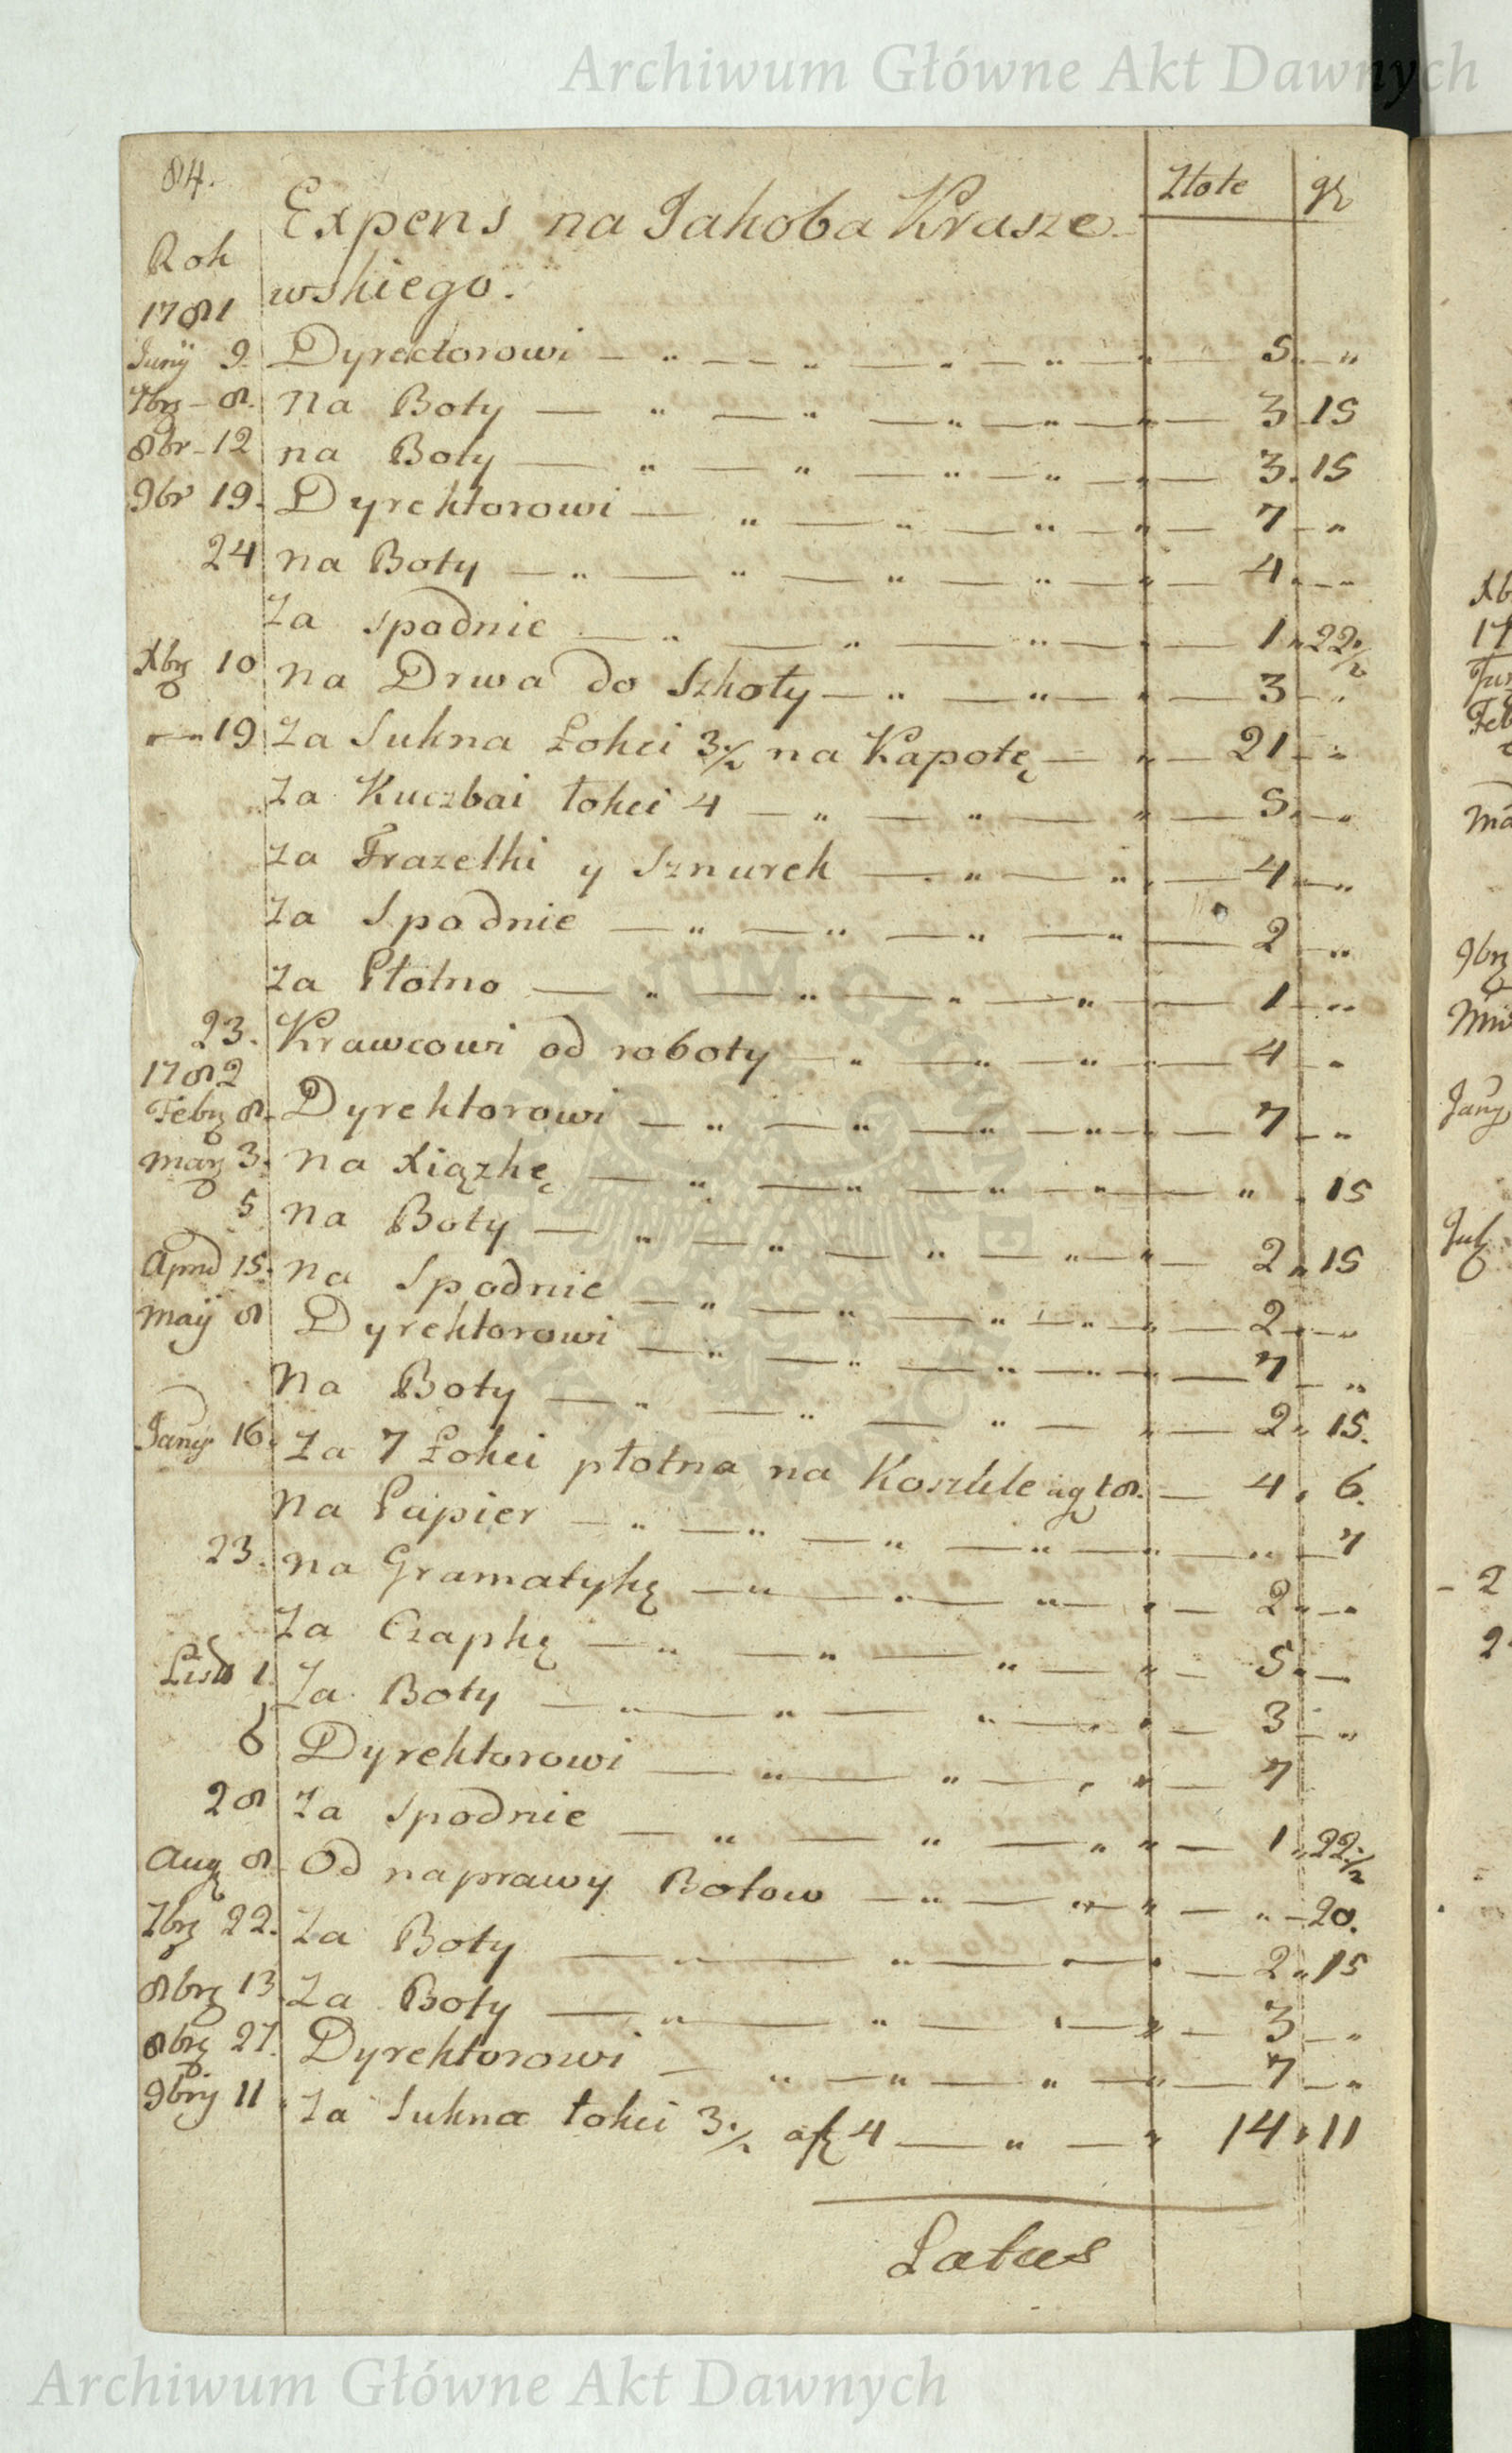 Archiwum Główne Akt Dawnych
84.
Złote gr
Expens na Jakoba Krasze-
Rok
wskiego.
1781
Junij 9. Dyrectorowi — „ — — „ — „ — „ — „ — 5. — „
7brz – 8. Na Boty — „ — „ — „ — „ — „ — 3 15
8br – 12 na Boty — „ — „ — „ — „ — „ — 3. 15
9br 19. Dyrektorowi — „ — „ — „ — „ — 7 — „
24 na Boty — „ — „ — „ — „ — „ — 4 „ — „
Za Spodnie — „ — „ — „ — „ — 1 „ 22 1/2
Xbrz 10 na Drwa do Szkoły — „ — „ — „ — 3 — „
— 19 Za Sukna Łokci 3 1/2 na Kapotę — „ — 21 — „
Za Kuczbai łokci 4 — „ — „ — „ — 5. — „
Za Frazelki y Sznurek — „ — „ — 4 „ — „
Za Spodnie — „ — „ — „ — „ — 2 — „
Za Płotno — „ — „ — „ — „ — 1 — „
23. Krawcowi od roboty — „ — „ — „ — 4 — „
1782
Febrz 8. Dyrektorowi — „ — „ — „ — „ — 7 — „
Marz 3. Na Xiązkę — „ — „ — „ — „ — „ . 15
5 Na Boty — „ — „ — „ — „ — „ — 2 „ 15
15. Na Spodnie — „ — „ — „ — „ — „ — 2 — „
Maij 8 Dyrektorowi — „ — „ — „ — „ — 7 — „
Na Boty — „ — „ — „ — „ — 2 „ 15.
16. Za 7 Łokci płotna na Koszule 18. — 4 „ 6.
Na Papier — „ — „ — „ — „ — „ — „ — 7
23. na Gramatykę — „ — „ — „ — „ — 2 „ — „
Za Czapkę — „ — „ — „ — „ — 5 „ —
1. Za Boty — „ — „ — „ — „ — 3 — „
6 Dyrektorowi — „ — „ — „ — 7
28 Za Spodnie — „ — „ — „ „ — 1 „ 22 1/2
Aug 8 Od naprawy Botow — „ — „ — „ — „ — 20.
7brz 22. Za Boty — „ — „ — „ — 2 „ 15
8brz 13 Za Boty — „ — „ — „ — „ — 3 — „
8brz 27. Dyrektorowi — „ — „ — „ — „ — 7 — „
9brij 11 Za Sukna łokci 3 1/2 4 — „ — „ 14 „ 11
Latus
Archiwum Główne Akt Dawnych